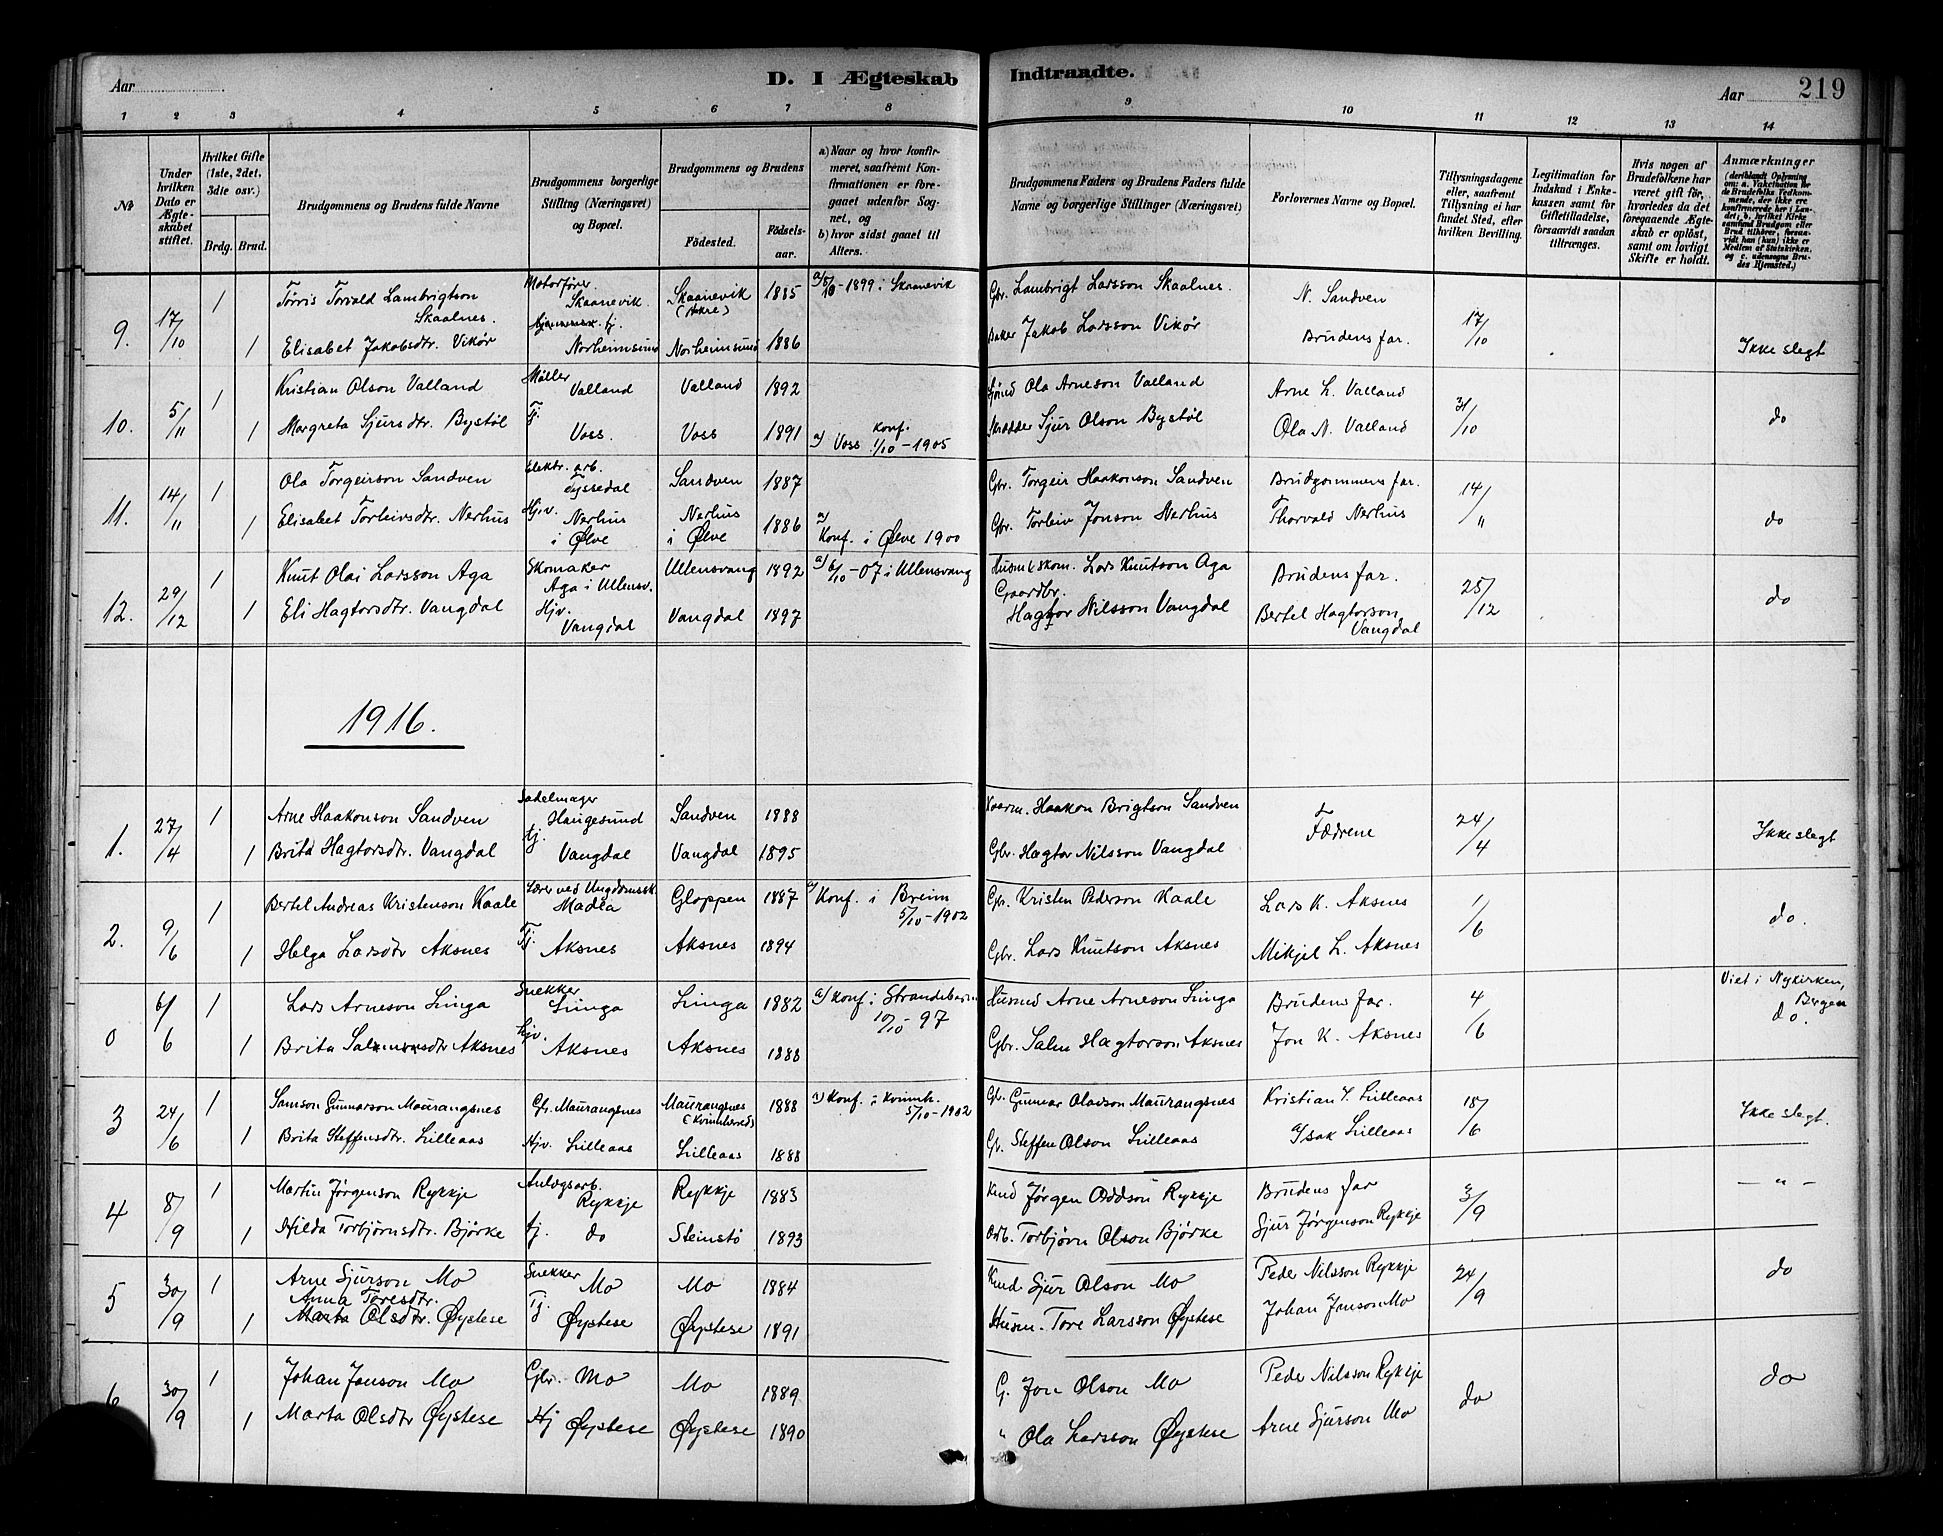 Aar
D. I Ægteskab Indtraadte.
Aar
219
1 2 3 4 5 6 7 8 9 10 11 12 13 14
№
Under hvilken Dato er Ægteskabet stiftet.
Hvilket Gifte (1ste, 2det, 3die osv.)
Brdg. Brud.
Brudgommens og Brudens fulde Navne
Brudgommens borgerlige Stilling (Næringsvei) og Bopæl.
Brudgommens og Brudens
Födested. Födselsaar.
a) Naar og hvor konfirmeret, saafremt Konfirmationen er foregaaet udenfor Sognet, og
b) hvor sidst gaaet til Alters.
Brudgommens Faders og Brudens Faders fulde Navne og borgerlige Stillinger (Næringsvei)
Forlovernes Navne og Bopæl.
Tillysningsdagene eller, saafremt Tillysning ei har fundet Sted, efter hvilken Bevilling.
Legitimation for Indskud i Enkekassen samt for Giftetilladelse, forsaavidt saadan tiltrænges.
Hvis nogen af Brudefolkene har været gift för, hvorledes da det foregaaende Ægteskab er oplöst, samt om lovligt Skifte er holdt.
Anmærkninger
(deriblandt Oplysning om: a. Vakcination for de Brudefolks Vedkommende, der ikke ere konfirmerede her i Landet, b. hvilket Kirkesamfund Brudgom eller Brud tilhører, forsaavidt han (hun) ikke er Medlem af Statskirken, og c. udensogns Brudes Hjemsted.)
9. 17/10 1 Tørris Torvald Lambrigtson Skaalnes. Motorfører Skaanevik. Skaanevik (Aakre) 1885 a/ 8/10-1899 i Skaanevik Gbr. Lambrigt Larsson Skaalnes. N. Sandven 17/10
1 Elisabet Jakobsdtr. Vikør tj. Norheimsund Norheimsund 1886 Baker Jakob Larsson Vikør Brudens far. Ikke slegt
10. 5/11 1 Kristian Olson Valland Møller Valland Valland 1892 Ola Arneson Valland Arne L. Valland 31/10 do
1 Margreta Sjursdtr. Bystøl Tj. Voss. Voss 1891 a/ Voss konf. 1/10-1905 Skrædder Sjur Olson Bystøl Ola N. Valland
11. 14/11 1 Ola Torgeirson Sandven Elektr. arb. Tyssedal Sandven 1887 Gbr. Torgeir Haakonson Sandven Brudgommens far. 14/11
1 Elisabet Torleivsdtr. Nerhus Hjv. Nerhus i Ølve Nerhus i Ølve 1886 a/ Konf. i Ølve 1900 Gbr. Torleiv Jonson Nerhus Thorvald Nerhus do
12. 29/12 1 Knut Olai Larsson Aga Skomaker Aga i Ullensv. Ullensvang 1892 a/ 6/10-07 i Ullensvang Husm. & skom. Lars Knutson Aga Brudens far. 25/12 do
1 Eli Hagtorsdtr. Vangdal Hjv. Vangdal Vangdal 1897 Gaardbr. Hagtor Nilsson Vangdal Bertel Hagtorson Vangdal
1916.
1. 27/4 1 Arne Haakonson Sandven Sadelmager Haugesund Sandven 1888 Haakon Brigtson Sandven Fædrene 24/4 Ikke slegt
1 Brita Hagtorsdtr. Vangdal tj. Vangdal Vangdal 1895 Gbr. Hagtor Nilsson Vangdal
2. 9/6 1 Bertel Andreas Kristenson Kaale Lærer ved Ungdomssk. Madla Gloppen 1887 a/ Konf. i Breim 5/10-1902 Gbr. Kristen Pederson Kaale Lars K. Aksnes 1/6 do.
1 Helga Larsdtr Aksnes Tj. Aksnes Aksnes 1894 Gbr. Lars Knutson Aksnes Mikjel L. Aksnes
0 6/6 1 Lars Arneson Linga Snekker Linga Linga 1882 a/ Konf. i Strandebarm 10/10-97 Husmd Arne Arneson Linga Brudens far. 4/6 Viet i Nykirken, Bergen do.
1 Brita Salamonsdtr Aksnes Hjv. Aksnes Aksnes 1888 Gbr. Salm Hagtorson Aksnes Jon K. Aksnes
3 24/6 1 Samson Gunnarson Maurangsnes Gbr. Maurangsnes Maurangsnes (Kvinnhered) 1888 a) Konf. i Kvinnh. 5/10-1902 Gbr. Gunnar Olavson Maurangsnes Kristian I. Lilleaas 18/6 Ikke slegt.
1 Brita Steffensdtr. Lilleaas Hjv. Lilleaas Lilleaas 1888 Gbr. Steffen Olson Lilleaas Isak Lilleaas
4 8/9 1 Martin Jørgenson Rykkje Anlægsarb. Rykkje Rykkje 1883 Jørgen Oddson Rykkje Brudens far 3/9 — " —
1 Hilda Torbjørnsdtr. Bjørke tj. do Steinstø 1893 Arb. Torbjørn Olson Bjørke Sjur Jørgenson Rykkje
5 30/9 1 Arne Sjurson Mo Snekker Mo Mo 1884 Sjur Olson Mo Peder Nilsson Rykkje 24/9 do
1 Anna Toresdtr. Marta Olsdtr. Øystese Tj Øystese Øystese 1891 Husm. Tore Larsson Øystese Johan Jonson Mo
6 30/9 1 Johan Jonson Mo Gbr. Mo Mo 1889 G. Jon Olson Mo Peder Nilsson Rykkje do do
1 Marta Olsdtr Øystese Hj Øystese Øystese 1890 " Ola Larsson Øystese Arne Sjurson Mo